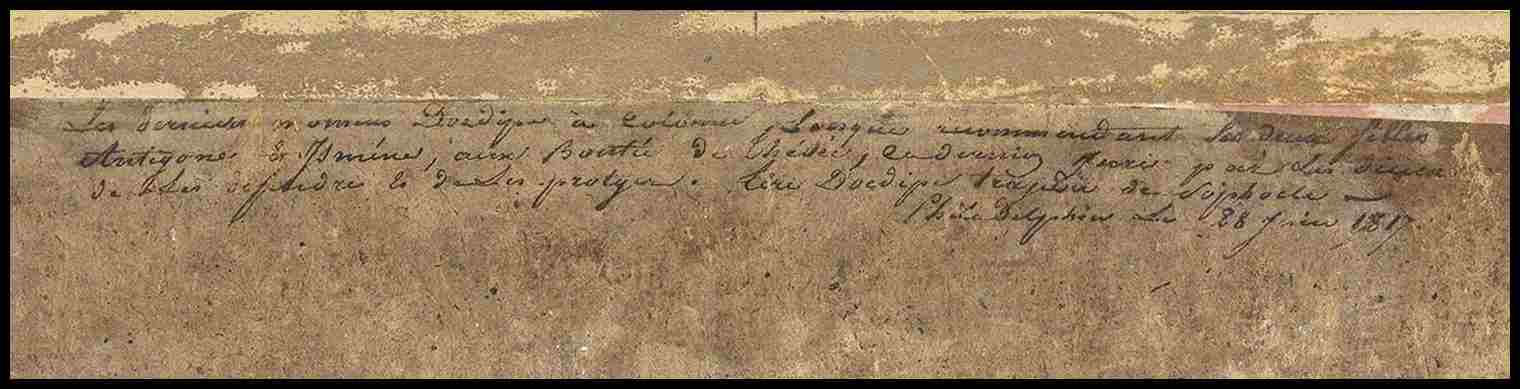 Les derniers momens Doedipe à Colonne, Lorsque recommendant Ses deux filles
Antigone & Ismène, aux Bontés De Thésée, Ce dernier jure par Les dieux
de Les defendre & de Les proteger. tiré Doedipe tragedie de Sophocle —
Philadelphie Le 28 Juin 1817.